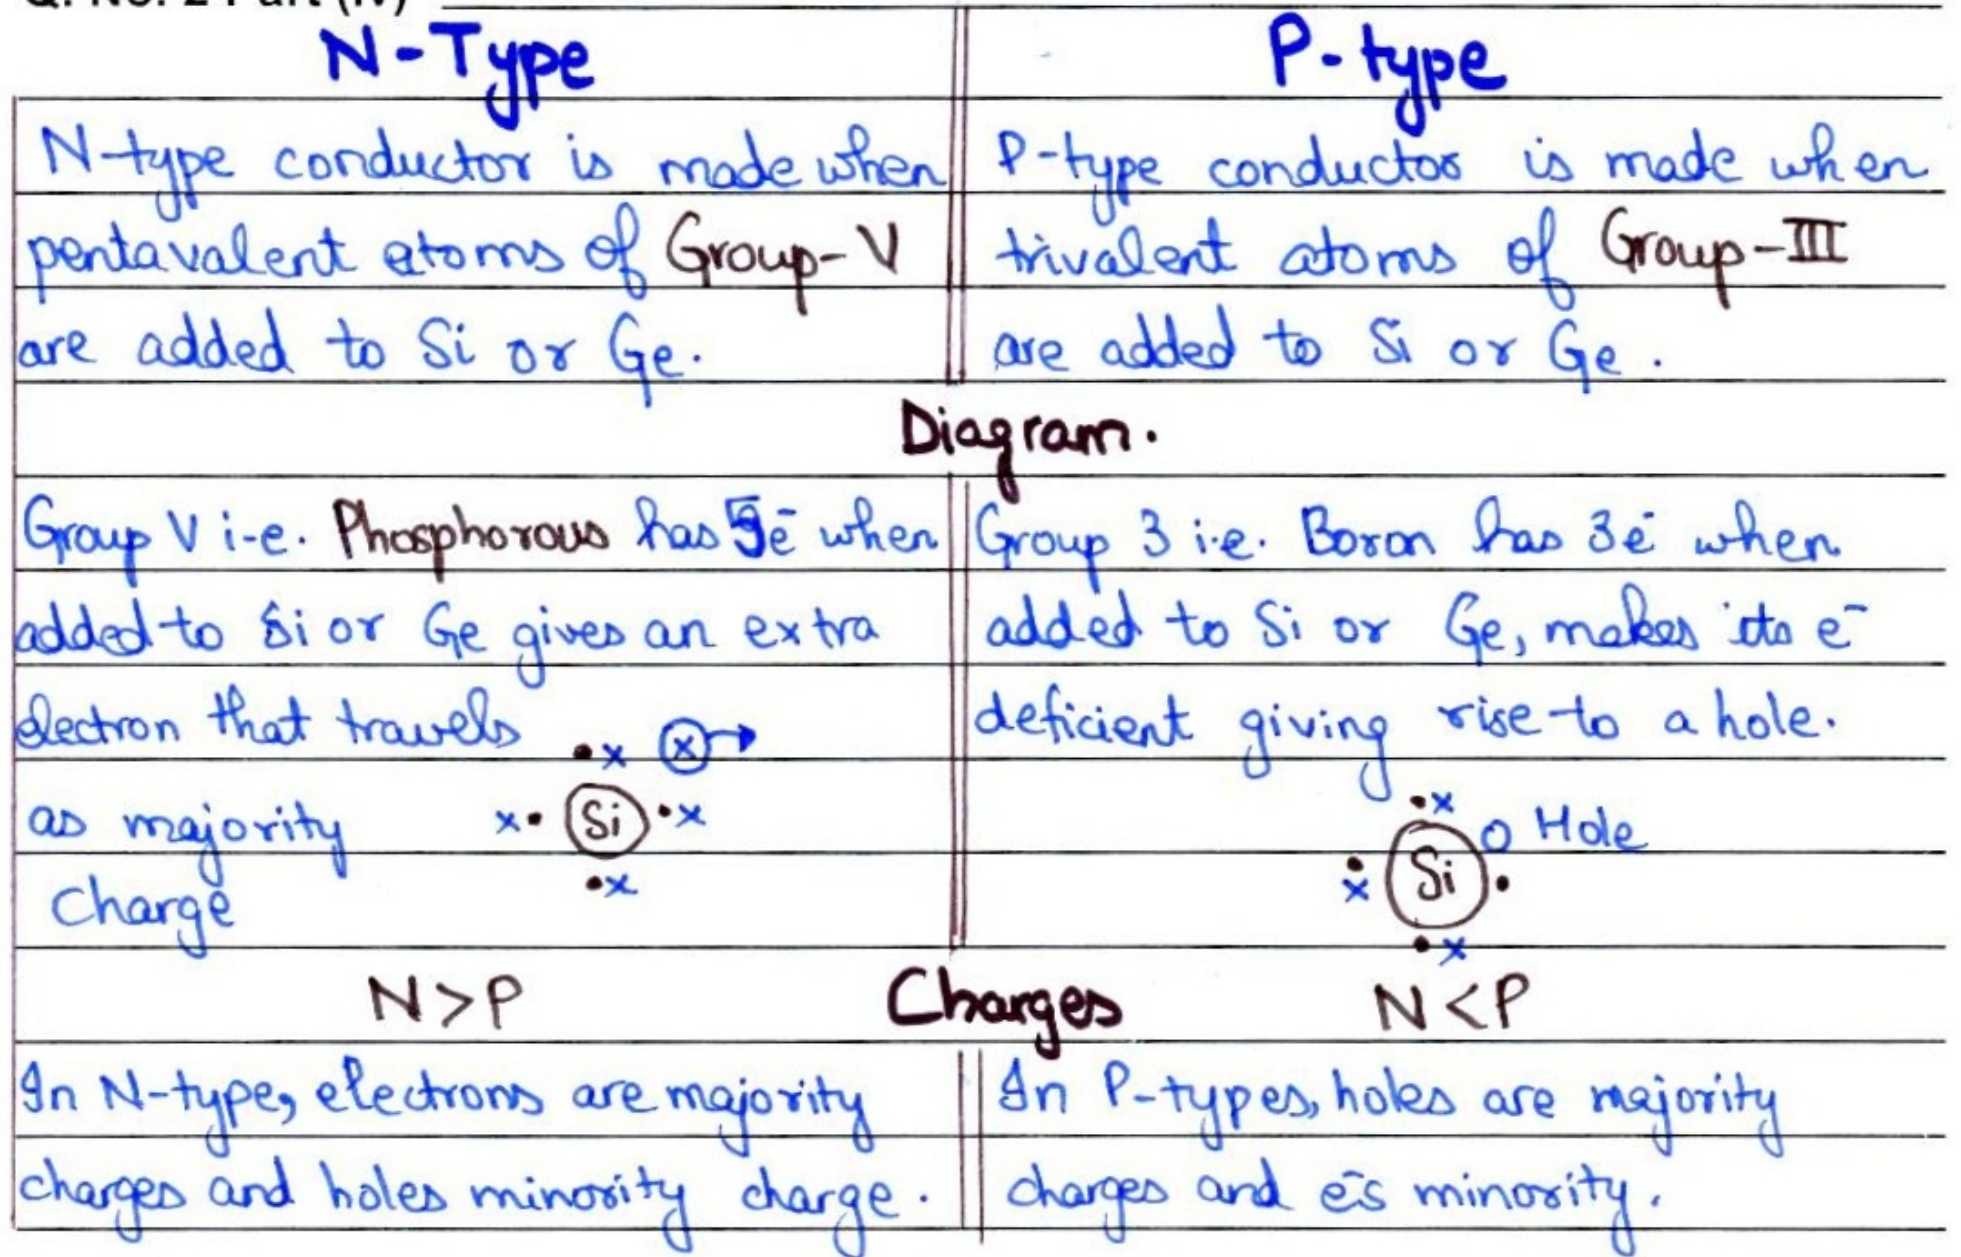 Q. No. 2 Part (iv)
N-Type
P-type
N-type conductor is made when
pentavalent atoms of Group-V
are added to Si or Ge.
P-type conductor is made when
trivalent atoms of Group-III
are added to Si or Ge.
Diagram.
Group V i-e. Phosphorous has 5ē when
added to Si or Ge gives an extra
electron that travels
as majority
charge
•x ⓧ→
x• Si •x
•x
Group 3 i.e. Boron has 3ē when
added to Si or Ge, makes its e⁻
deficient giving rise to a hole.
•x
o Hole
•
x Si •
•x
N>P
Charges
N<P
In N-type, electrons are majority
charges and holes minority charge.
In P-types, holes are majority
charges and ēs minority.